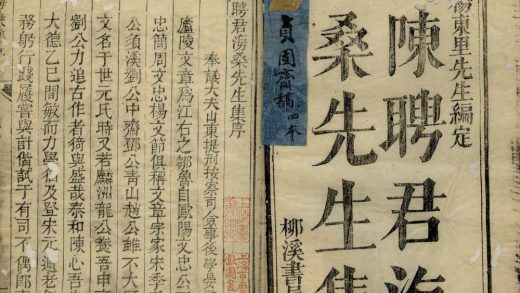 東里先生編定
陳聘君海
桑先生集
柳溪書
齋稿 四本
聘君海桑先生集序
奉議大夫山東提刑按察司僉事後學吳
廬陵文章為江右之鄒魯自歐陽文忠公
忠簡周文忠楊文節俱稱文章宗家宋季
公須溪劉公中齋鄧公青山趙公雖不大
文名于世元氏時又若麟洲龍公養吾
劉公力追古作者倘與盛哉泰和陳心吾
大德乙巳間敏而力學及登宋元遺老
務躬行踐履嘗與計偕試于有司不偶即